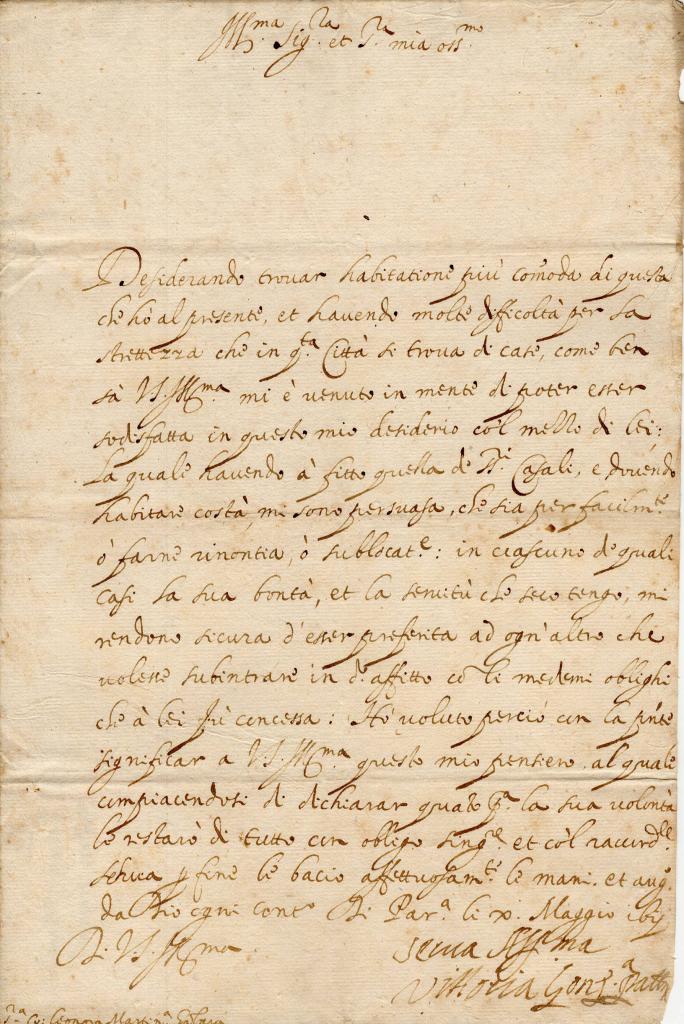 Ill.ma Sig.ra et P.ra mia oss.ma
Desiderando trovar habitatione più comoda di questa
che hò al presente, et havendo molte difficoltà per la
strettezza che in q.ta Città si trova di case, come ben
sà V.S. Ill.ma mi è venuto in mente di poter esser
sodisfatta in questo mio desiderio co'l mezzo di lei:
La quale havendo à fitto quella de SS.ri Casali, e dovendo
habitare costà, mi sono persuasa, che sia per facilm.te
ò farne rinontia, ò sublocat.e: in ciascuno de quali
casi la sua bontà, et la servitù che seco tengo, mi
rendono sicura d'esser preferita ad ogn'altro che
volesse subintrare in d.o affitto cō le medeme oblighi
che à lei fù concessa: Hò voluto perciò con la pñte
significar a V.S. Ill.ma questo mio pensiero, al quale
compiacendosi di dichiarar quāto p.a la sua volontà
le restarò di tutto con obligo sing.re et co'l raccord.le
p fine le bacio affettuosam.te le mani. et aug.o
da Dio ogni cont.o Di Par.a li x. Maggio
Di V.S. Ill.ma
Serva Aff.ma
Vittoria Gonz.a
S.ra Co: Leonora Martin.a